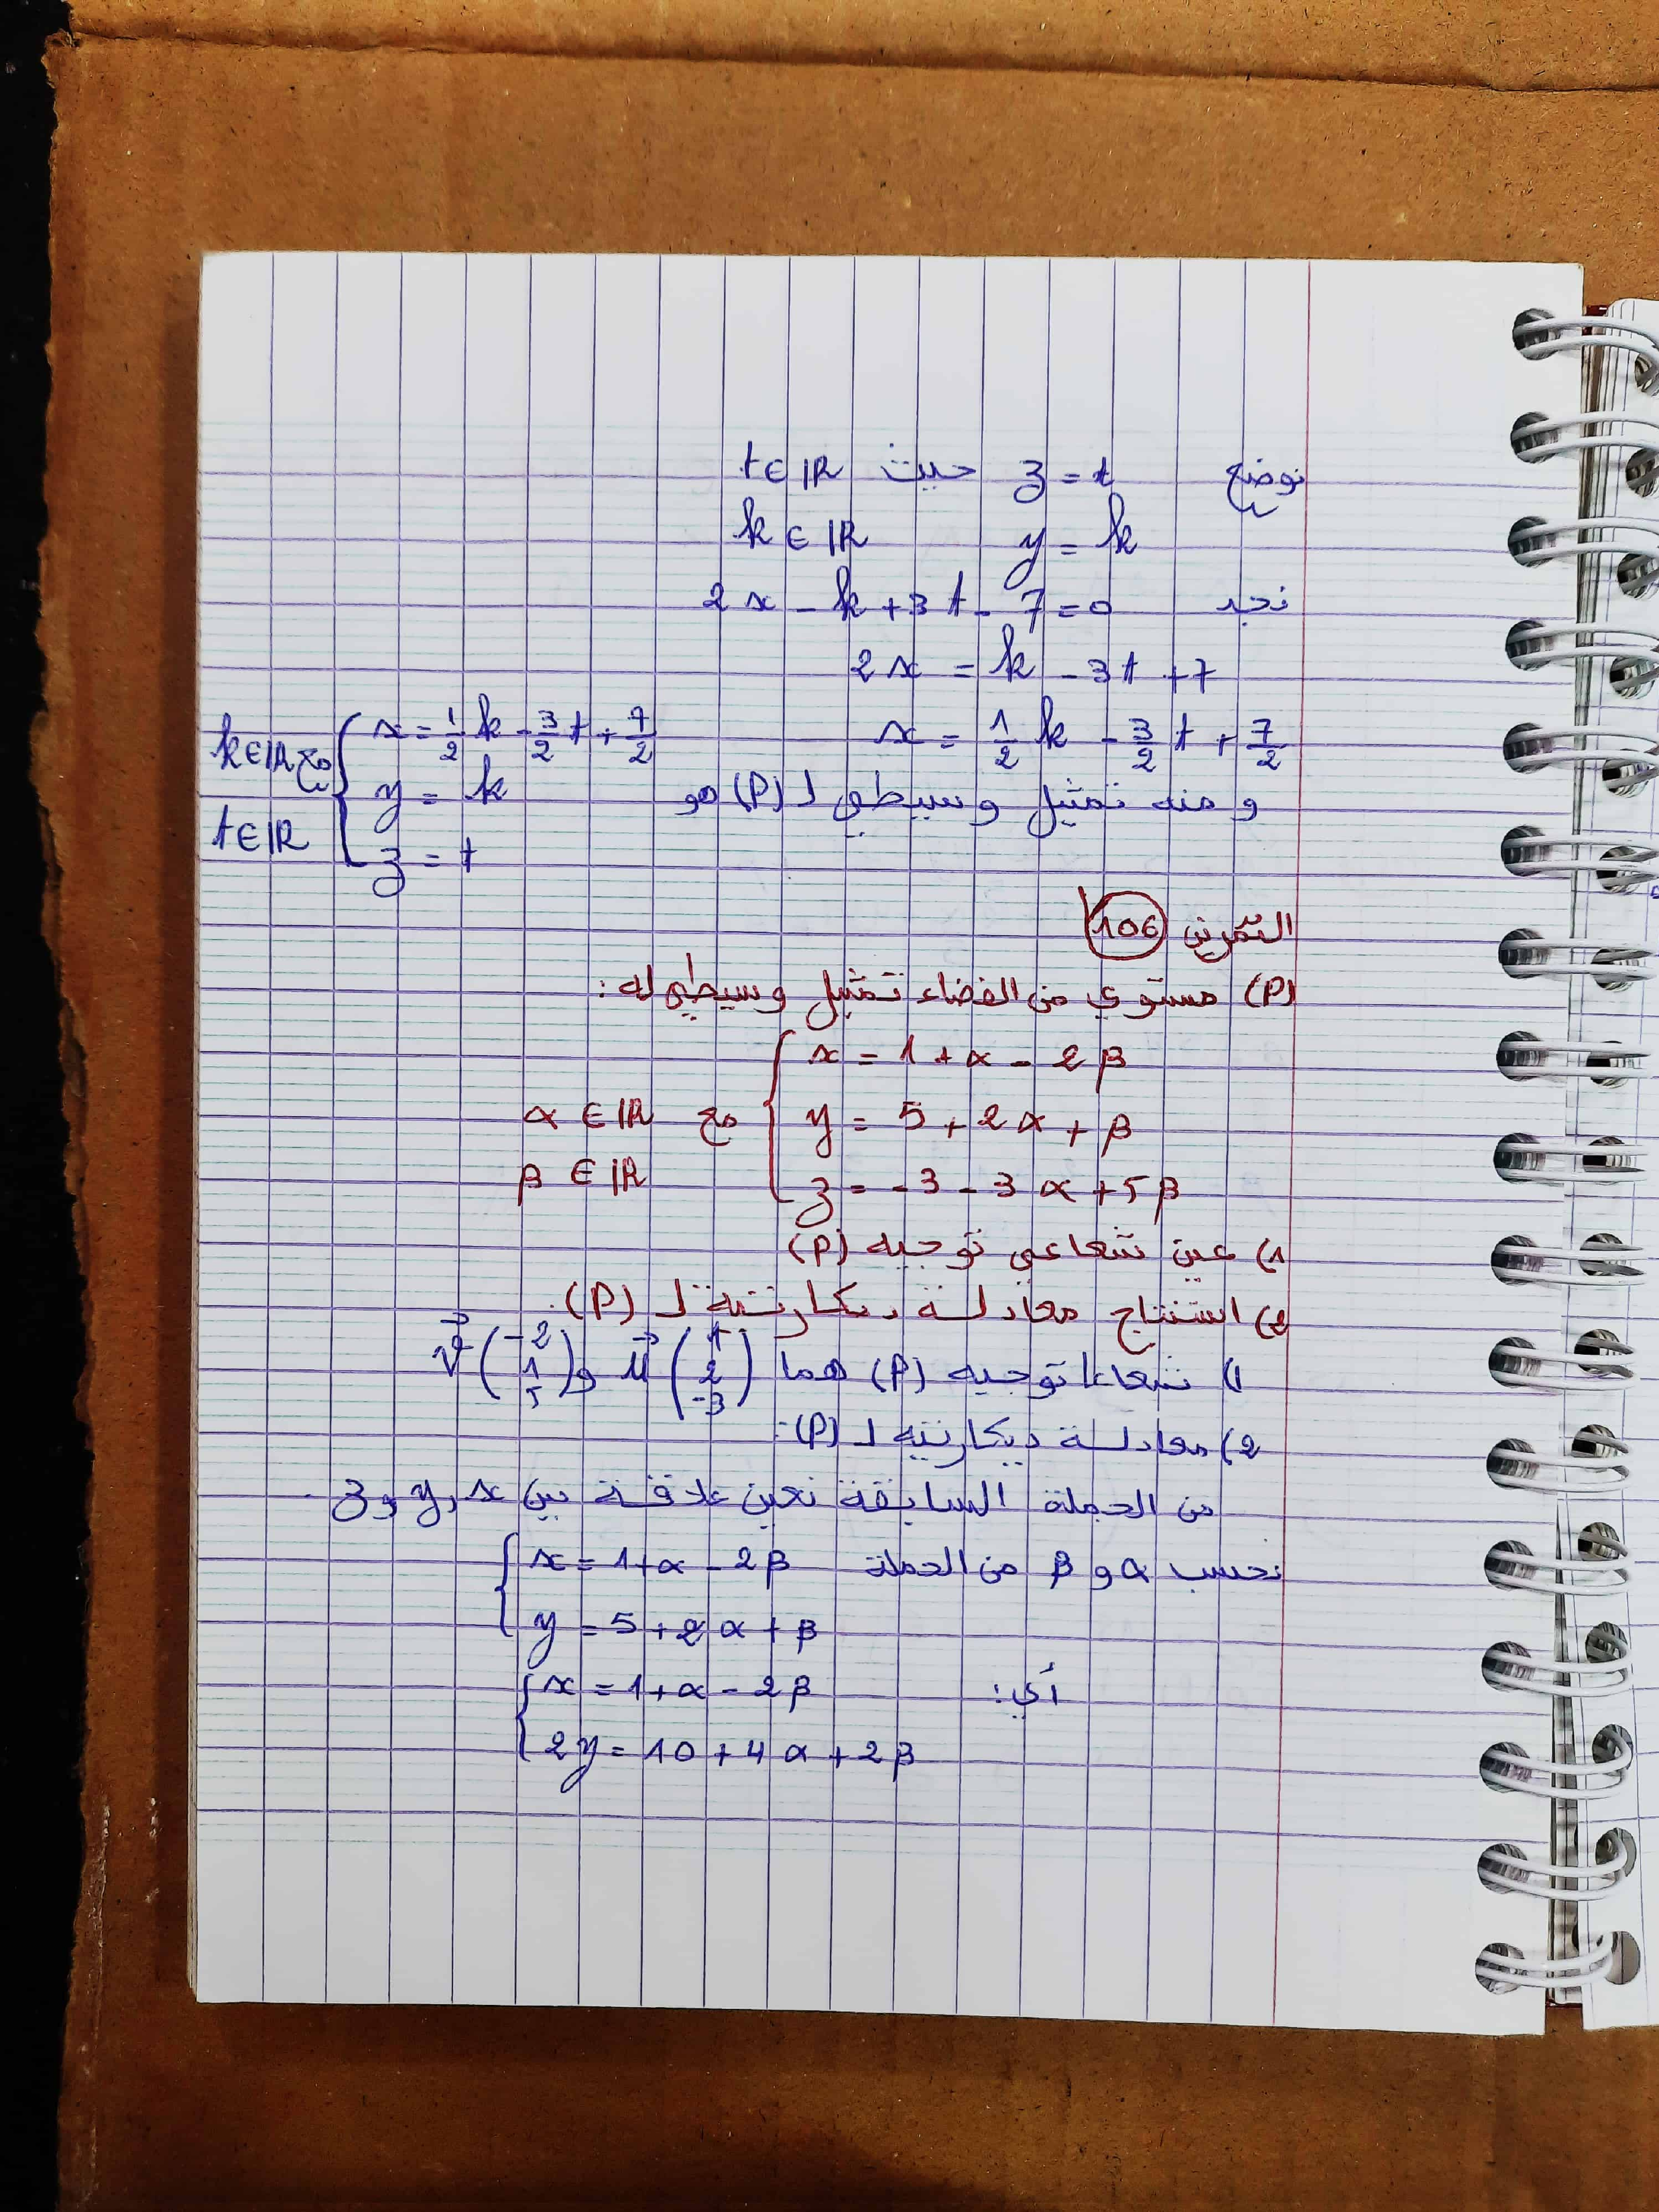 نوضع z = t حيث t ∈ ℝ
y = k k ∈ ℝ
نجد 2x - k + 3t - 7 = 0
2x = k - 3t + 7
x = 1/2 k - 3/2 t + 7/2
و منه تمثيل وسيطي لـ (P) هو
{ x = 1/2 k - 3/2 t + 7/2
y = k مع k ∈ ℝ
z = t t ∈ ℝ
التمرين 106
(P) مستوي من الفضاء تمثيل وسيطي له :
{ x = 1 + α - 2β
y = 5 + 2α + β مع α ∈ ℝ
z = -3 - 3α + 5β β ∈ ℝ
1) عين شعاعي توجيه (P)
2) استنتاج معادلة ديكارتية لـ (P).
1) شعاعا توجيه (P) هما u⃗ (1 2 -3) و v⃗ (-2 1 5)
2) معادلة ديكارتية لـ (P):
من الجملة السابقة نعين علاقة بين x و y و z.
نحسب α و β من الجملة { x = 1 + α - 2β
y = 5 + 2α + β
أي: { x = 1 + α - 2β
2y = 10 + 4α + 2β